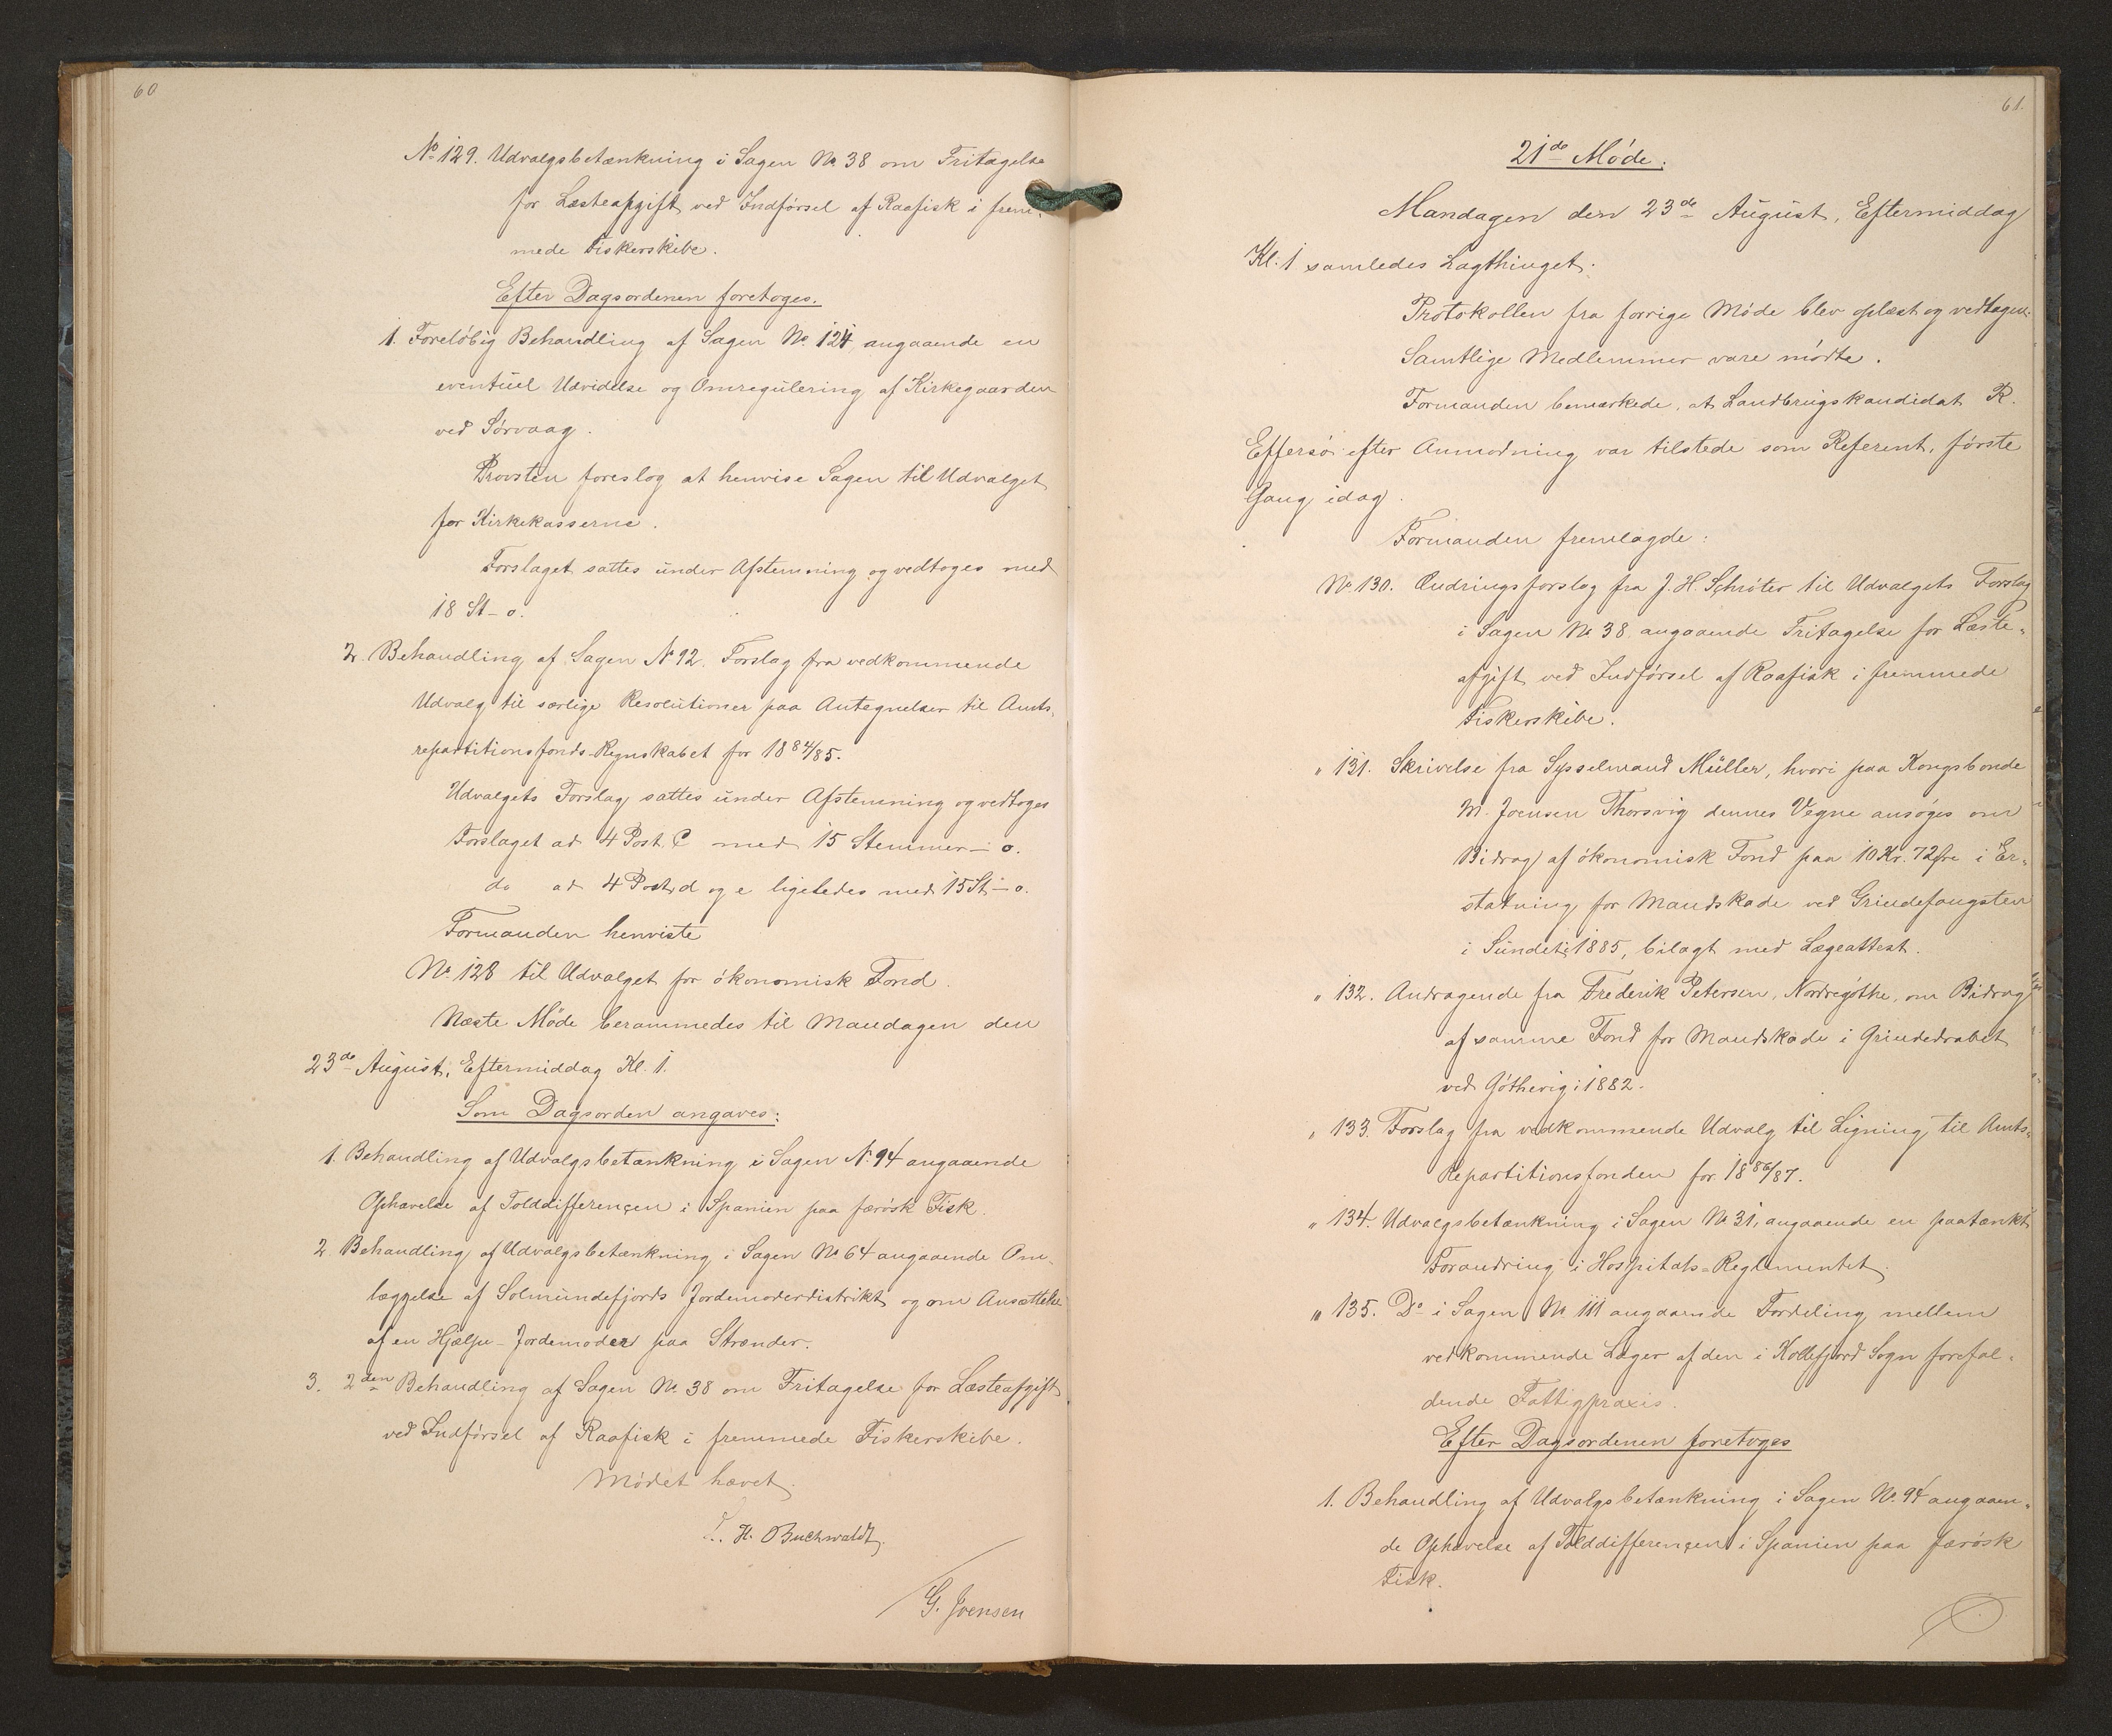 60
No 129. Udvalgsbetænkning i Sagen No 38 om Fritagelse
for Læsteafgift ved Indførsel af Raafisk i frem-
mede Fiskerskibe.
Efter Dagsordenen foretoges.
1. Foreløbig Behandling af Sagen No 124 angaaende en
eventuel Udvidelse og Omregulering af Kirkegaarden
ved Sørvaag.
Provsten foreslog at henvise Sagen til Udvalget
for Kirkekasserne.
Forslaget sattes under Afstemning og vedtoges med
18 St - o.
2. Behandling af Sagen No 92. Forslag fra vedkommende
Udvalg til særlige Resolutioner paa Antegnelser til Amts-
repartitionsfonds-Regnskabet for 1884/85.
Udvalgets Forslag sattes under Afstemning og vedtoges
Forslaget ad 4 Post C med 15 Stemmer - o.
do ad 4 Post d og e ligeledes med 15 St - o.
Formanden henviste
No 128 til Udvalget for økonomisk Fond.
Næste Møde berammedes til Mandagen den
23de August, Eftermiddag Kl. 1.
Som Dagsorden angaves:
1. Behandling af Udvalgsbetænkning i Sagen No 94 angaaende
Ophævelse af Tolddifferencen i Spanien paa færøsk Fisk.
2. Behandling af Udvalgsbetænkning i Sagen No 64 angaaende Om-
læggelse af Solmundefjords Jordemoderdistrikt og om Ansættelse
af en Hjælpe-Jordemoder paa Strænder.
3. 2den Behandling af Sagen No 38 om Fritagelse for Læsteafgift
ved Indførsel af Raafisk i fremmede Fiskerskibe.
Mødet hævet
H. Buchwaldt.
G. Joensen
61.
21de Møde.
Mandagen den 23de August, Eftermiddag
Kl. 1 samledes Lagthinget.
Protokollen fra forrige Møde blev oplæst og vedtagen.
Samtlige Medlemmer vare mødte.
Formanden bemærkede, at Landbrugskandidat R.
Effersø efter Anmodning var tilstede som Referent, første
Gang idag.
Formanden fremlagde:
No 130. Ændringsforslag fra J. H. Schrøter til Udvalgets Forslag
i Sagen No 38 angaaende Fritagelse for Læste-
afgift ved Indførsel af Raafisk i fremmede
Fiskerskibe.
" 131. Skrivelse fra Sysselmand Müller, hvori paa Kongsbonde
M. Joensen Thorsvig dennes Vegne ansøges om
Bidrag af økonomisk Fond paa 10 Kr. 72 Øre i Er-
statning for Mandskade ved Grindefangsten
i Sundet i 1885, bilagt med Lægeattest.
" 132. Andragende fra Frederik Petersen, Nordregøthe, om Bidrag
af samme Fond for Mandskade i Grindedrabet
ved Gøthevig i 1882.
" 133. Forslag fra vedkommende Udvalg til Ligning til Amts-
Repartitionsfonden for 1886/87.
" 134. Udvalgsbetænkning i Sagen No 31, angaaende en paatænkt
Forandring i Hospitals-Reglementet.
" 135. Do i Sagen No 111 angaaende Fordeling mellem
vedkommende Læger af den i Kollefjord Sogn forefal-
dende Fattigpraxis.
Efter Dagsordenen foretoges
1. Behandling af Udvalgsbetænkning i Sagen No. 94 angaaen-
de Ophævelse af Tolddifferencen i Spanien paa færøsk
Fisk.